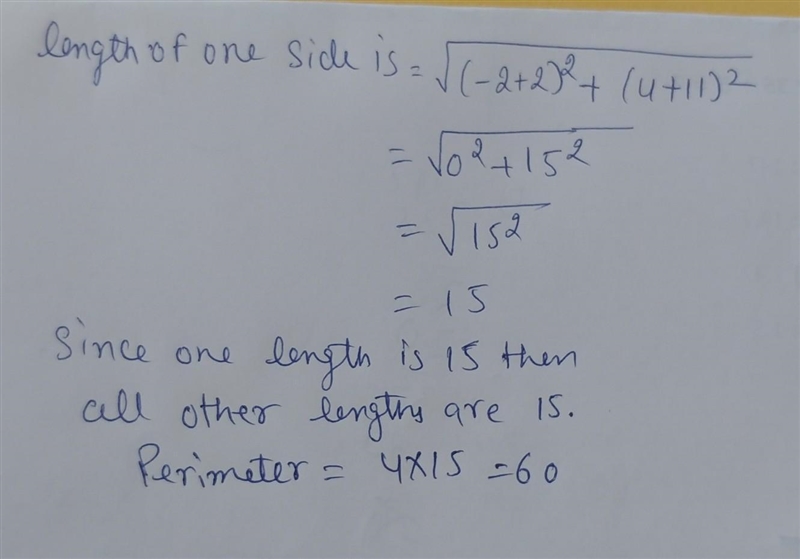 length of one side is = √(-2+2)² + (4+11)²
= √0² + 15²
= √15²
= 15
Since one length is 15 then
all other lengths are 15.
Perimeter = 4×15 = 60